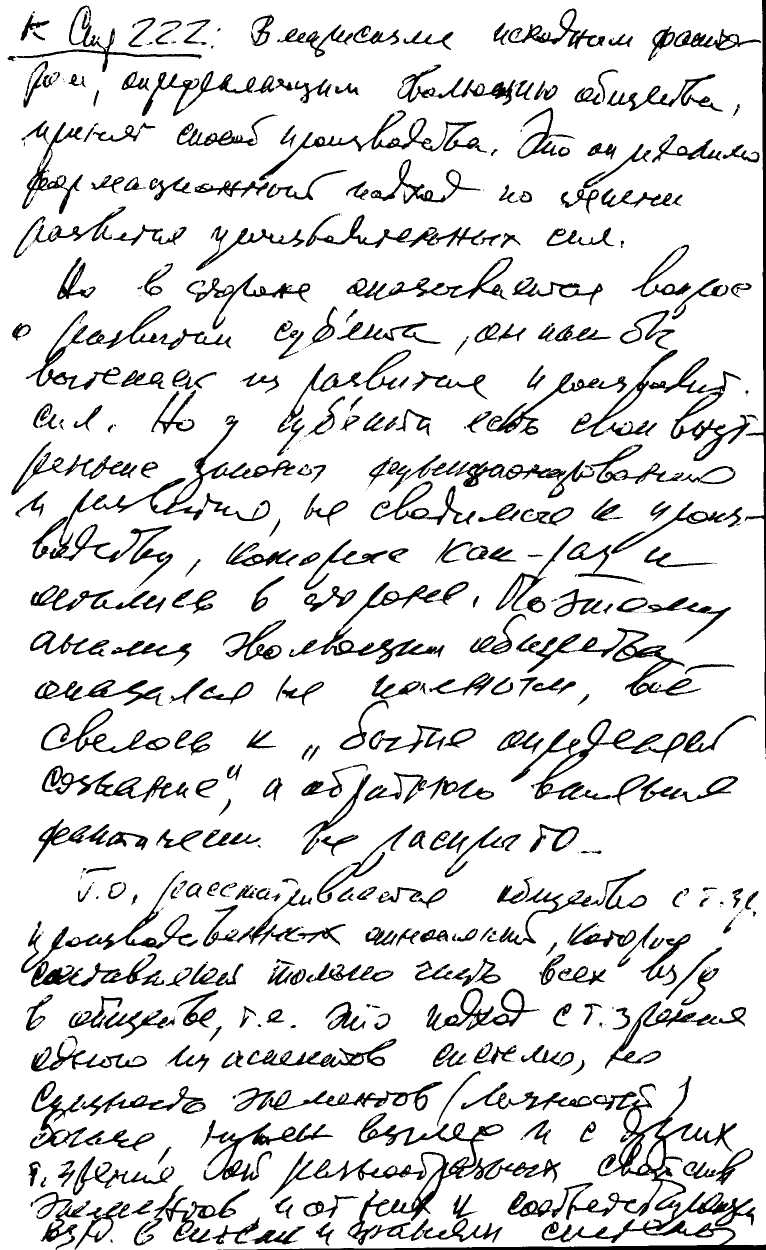 К Стр 222: В марксизме исходным факто-
ром, определяющим эволюцию общества,
принят способ производства. Это определило
формационный подход по степени
развития производительных сил.
Но в стороне оказывается вопрос
о развитии субъекта, он как бы
вытекает из развития производит.
сил. Но у субъекта есть свои внут-
ренние законы функционирования
и развития, не сводимые к произ-
водству, которые как-раз и
остались в стороне. Поэтому
анализ эволюции общества
оказался не полным, всё
свелось к „бытие определяет
сознание", а обратного влияния
фактически не раскрыто_
Т.о. рассматривается общество с т.зр.
производственных отношений, которые
составляют только часть всех вз/д
в обществе, т.е. это подход с т. зрения
одного из аспектов системы, но
сущность элементов (личностей)
больше, нужен взгляд и с других
т. зрения от разнообразных свойств
элементов и от них и соответствующих
вз/д. в системе и системы